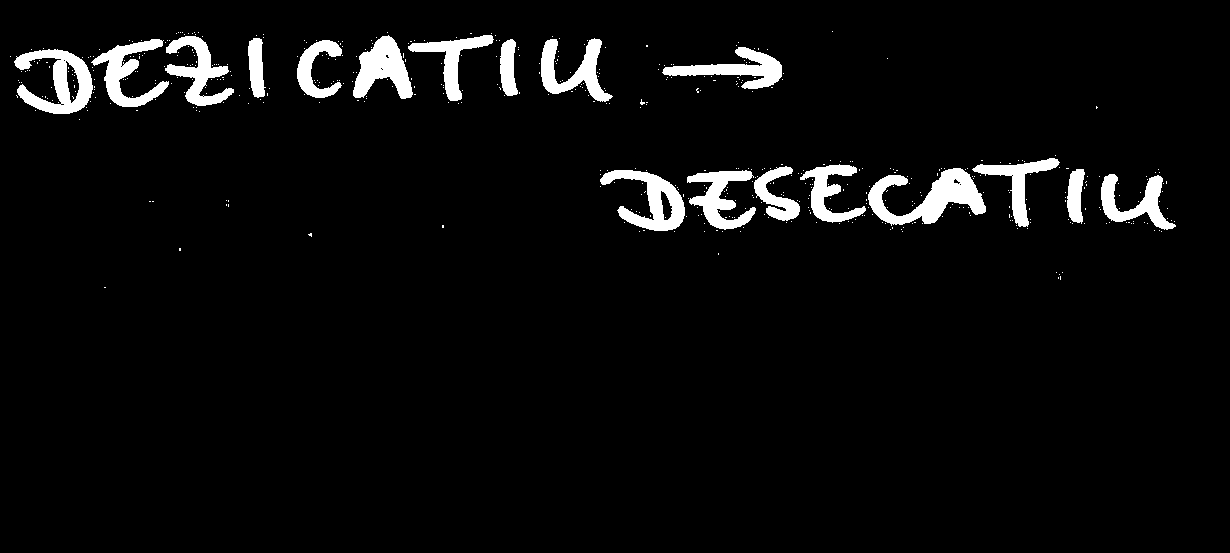 DEZICATIU →
DESECATIU